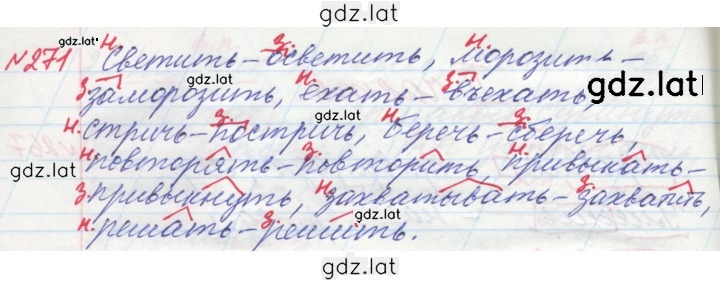 gdz.lat
№271 Светить – осветить, морозить –
gdz.lat
заморозить, ехать – въехать,
gdz.lat
стричь – постричь, беречь – сберечь,
gdz.lat
повторять – повторить, привыкать –
привыкнуть, захватывать – захватить,
gdz.lat
решать – решить.
gdz.lat